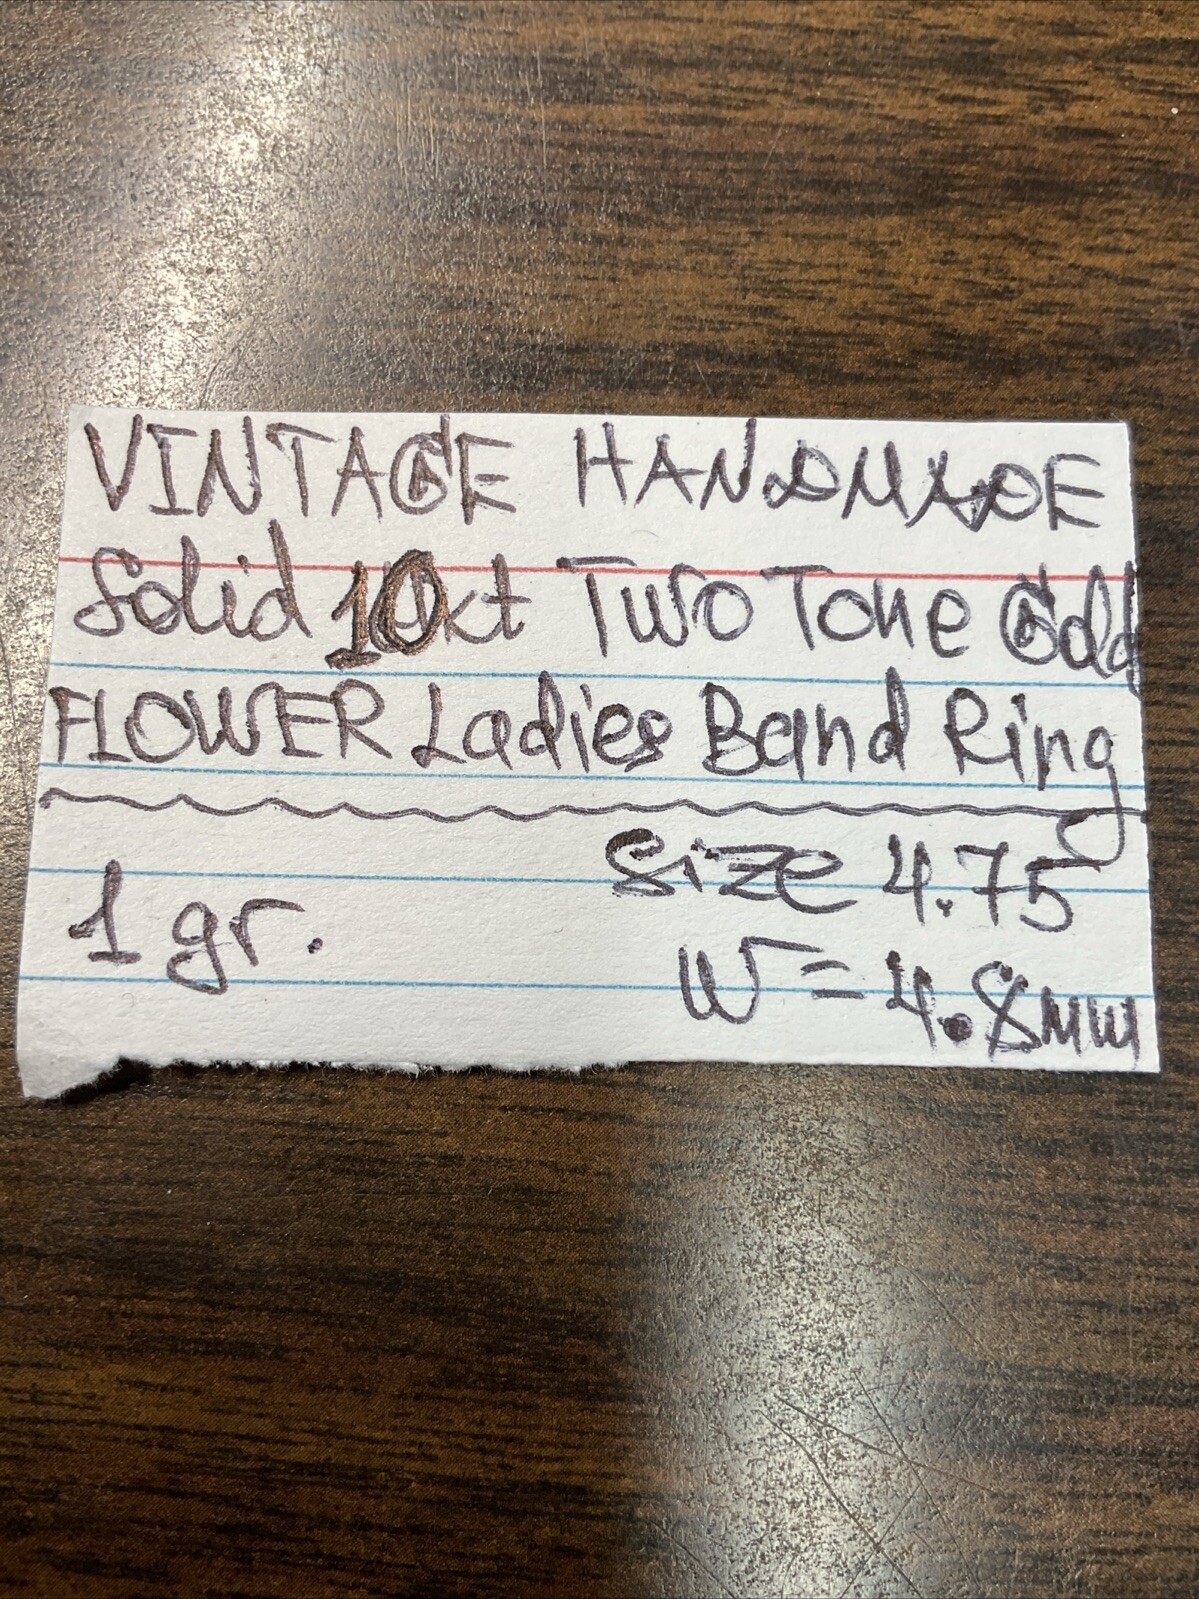 VINTAGE HANDMADE
Solid 10kt Two Tone Gold
FLOWER Ladies Band Ring
size 4.75
1 gr.
W = 4.8mm